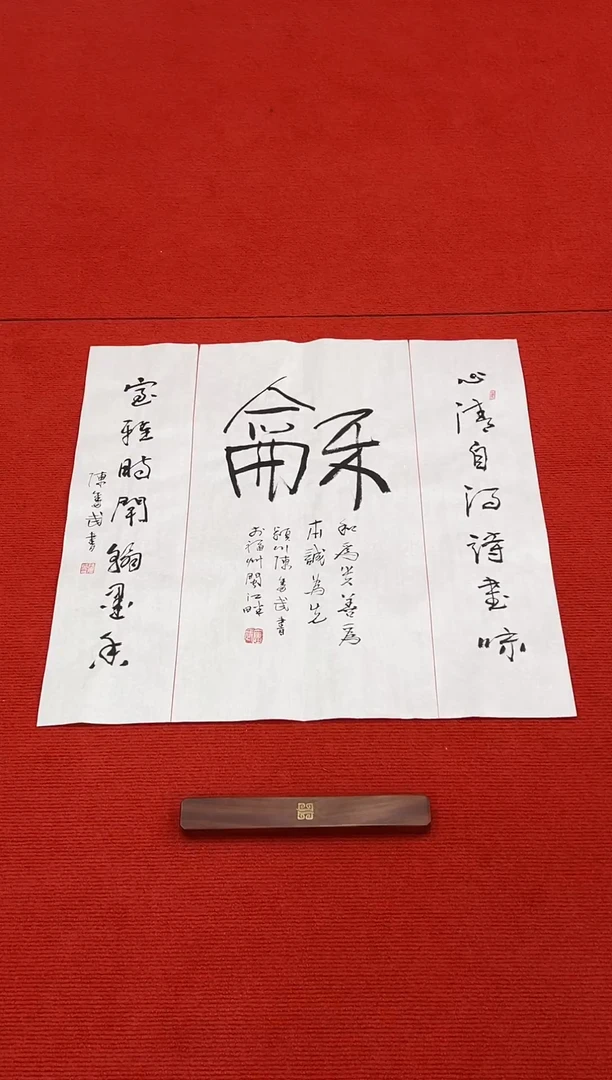 心清自得詩書味
龢
和為貴善為
本誠為先
潁川陳書
於福州閩江畔
室雅時聞翰墨香
陳書